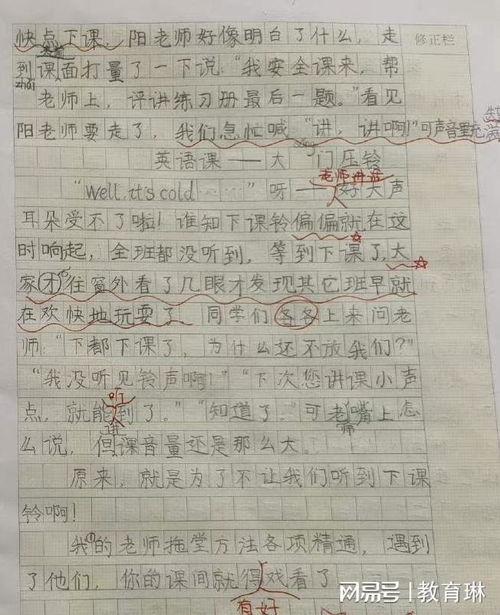 快点下课。阳老师好像明白了什么，走 修正栏
到课面打量了一下说“我安全课来，帮
zhāi
老师上，评讲练习册最后一题。”看见
阳老师要走了，我们急忙喊“讲，讲啊！”可声音里充满
英语课——大门压铃
老师讲话
“well, it's cold ……”呀——好大声
耳朵受不了啦！谁知下课铃偏偏就在这
时响起，全班都没听到，等到下课了，大
家才往窗外看了几眼才发现其它班早就
在欢快地玩耍了。同学们各各上来问老
师“下都下课了，为什么还不放我们？”
“我没听见铃声啊！”“下次您讲课小声
点，就能听到了。”“知道了。”可老师嘴上怎
么说，但课音量还是那么大。
讲
原来，就是为了不让我们听到下课
铃啊！
我的老师拖堂方法各项精通，遇到
了他们，你的课间就得戏看了
有好
网易号 | 教育琳